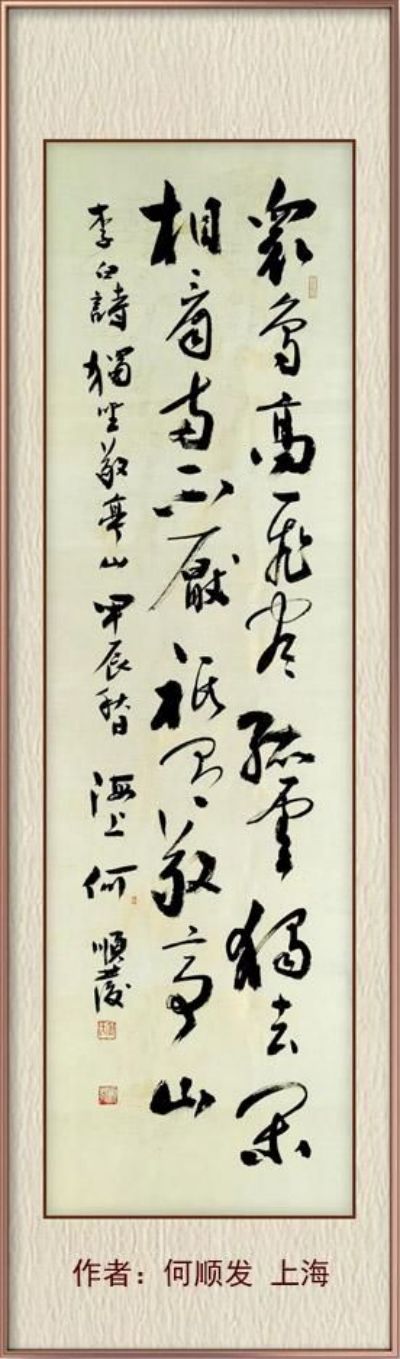 衆鳥高飛盡孤雲獨去閑
相看兩不厭祇有敬亭山
李白詩獨坐敬亭山甲辰秋日海上何順發
作者：何顺发 上海